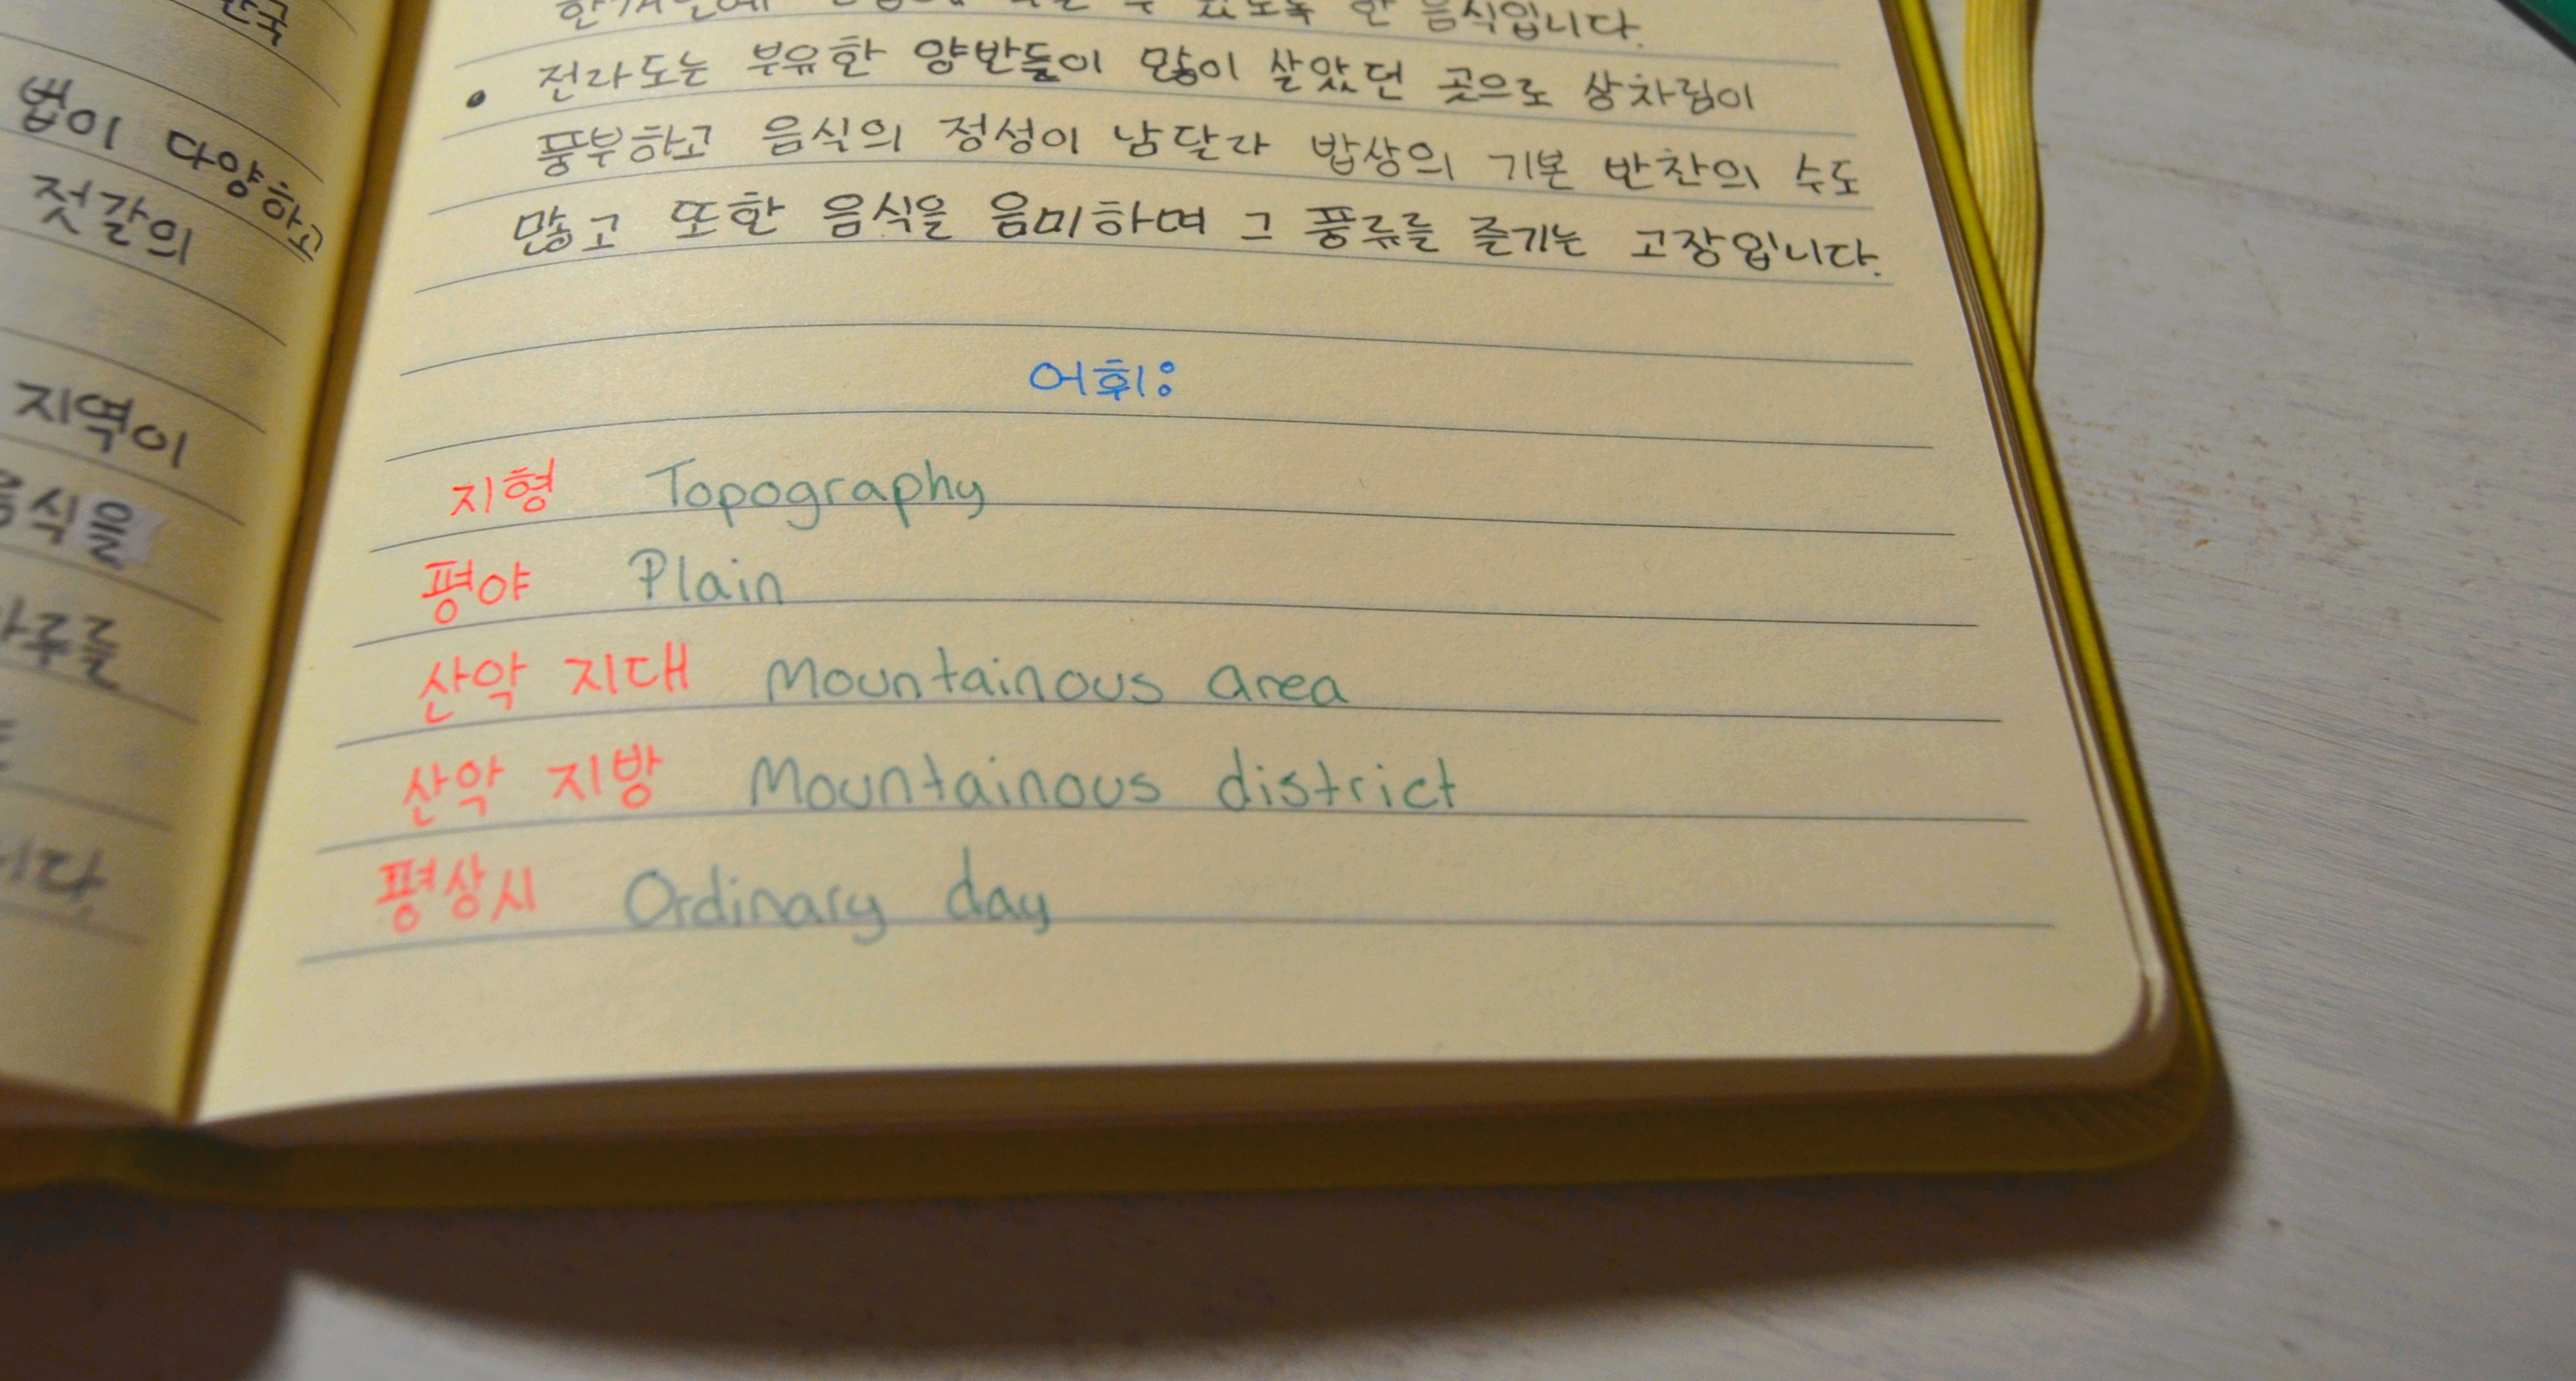 법이 다양하고
젓갈의
지역이
식을
니다.
한 음식입니다.
• 전라도는 부유한 양반들이 많이 살았던 곳으로 상차림이
풍부하고 음식의 정성이 남달라 밥상의 기본 반찬의 수도
많고 또한 음식을 음미하며 그 풍류를 즐기는 고장입니다.
어휘:
지형 Topography
평야 Plain
산악 지대 Mountainous area
산악 지방 Mountainous district
평상시 Ordinary day